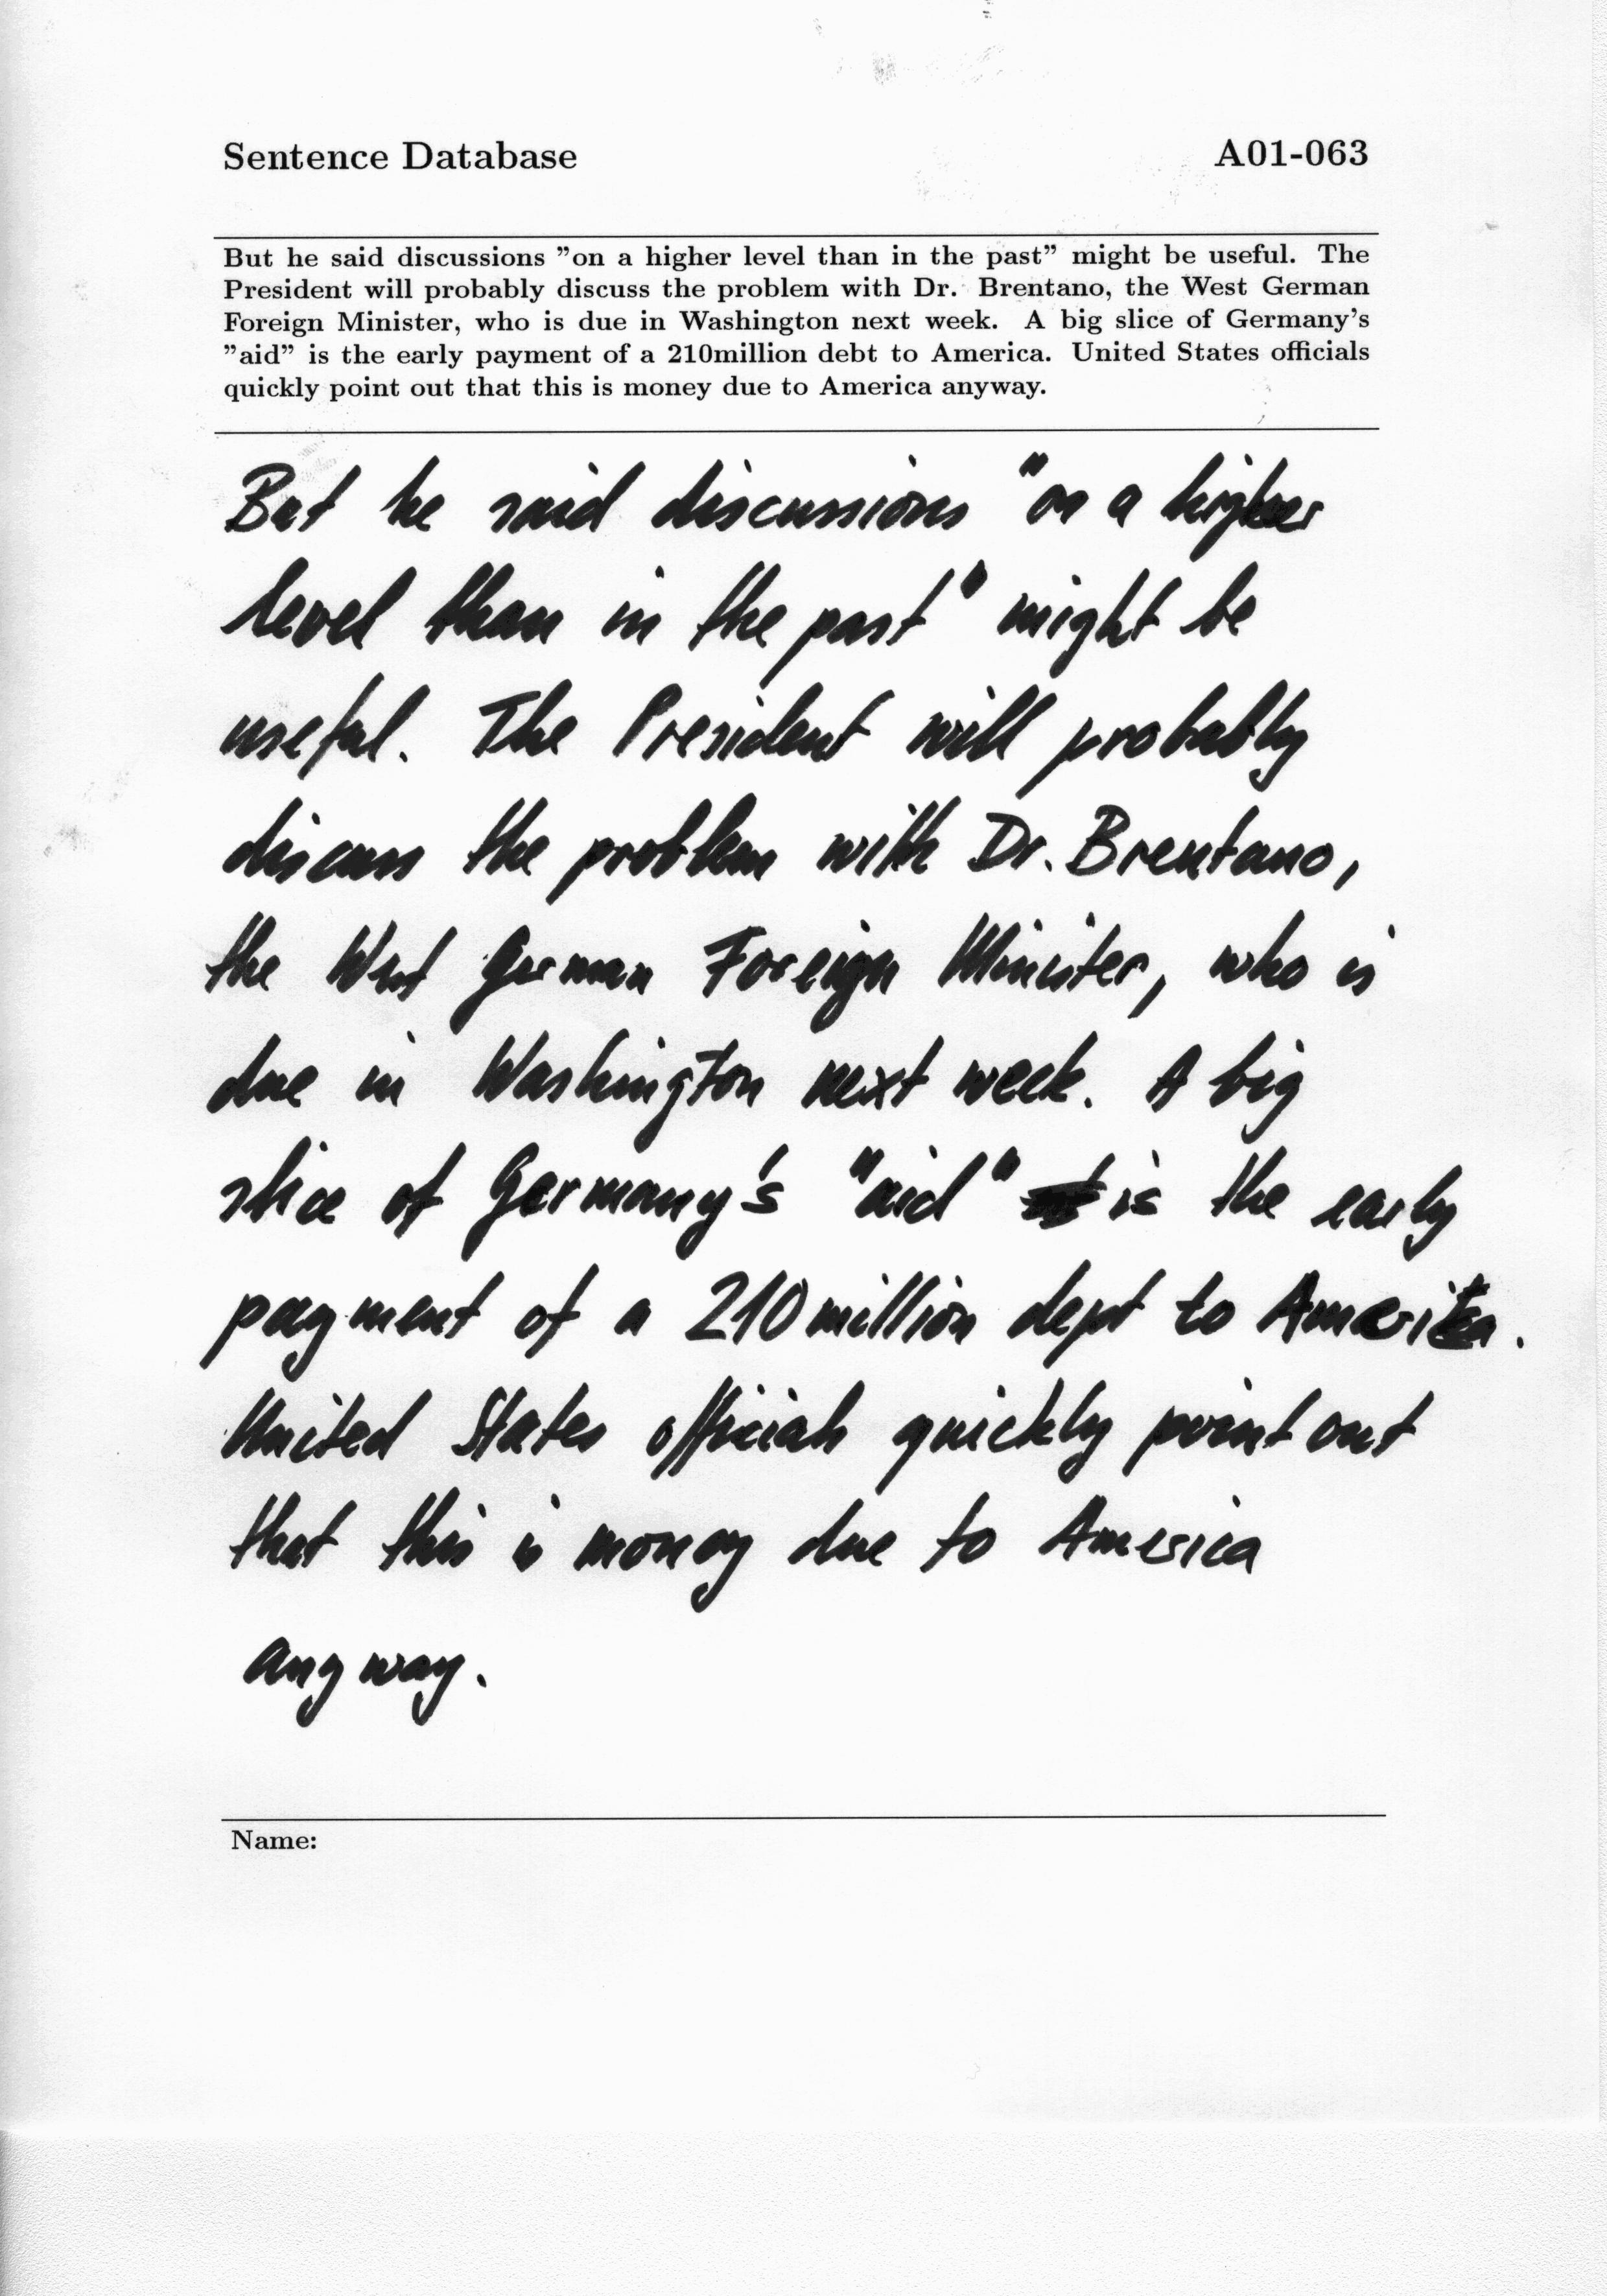 Sentence Database A01-063
But he said discussions ”on a higher level than in the past” might be useful. The
President will probably discuss the problem with Dr. Brentano, the West German
Foreign Minister, who is due in Washington next week. A big slice of Germany's
”aid” is the early payment of a 210million debt to America. United States officials
quickly point out that this is money due to America anyway.
But he said discussions "on a higher
level than in the past" might be
useful. The President will probably
discuss the problem with Dr. Brentano,
the West German Foreign Minister, who is
due in Washington next week. A big
slice of Germany's "aid" is the early
payment of a 210million dept to America.
United States officials quickly point out
that this is money due to America
anyway.
Name: